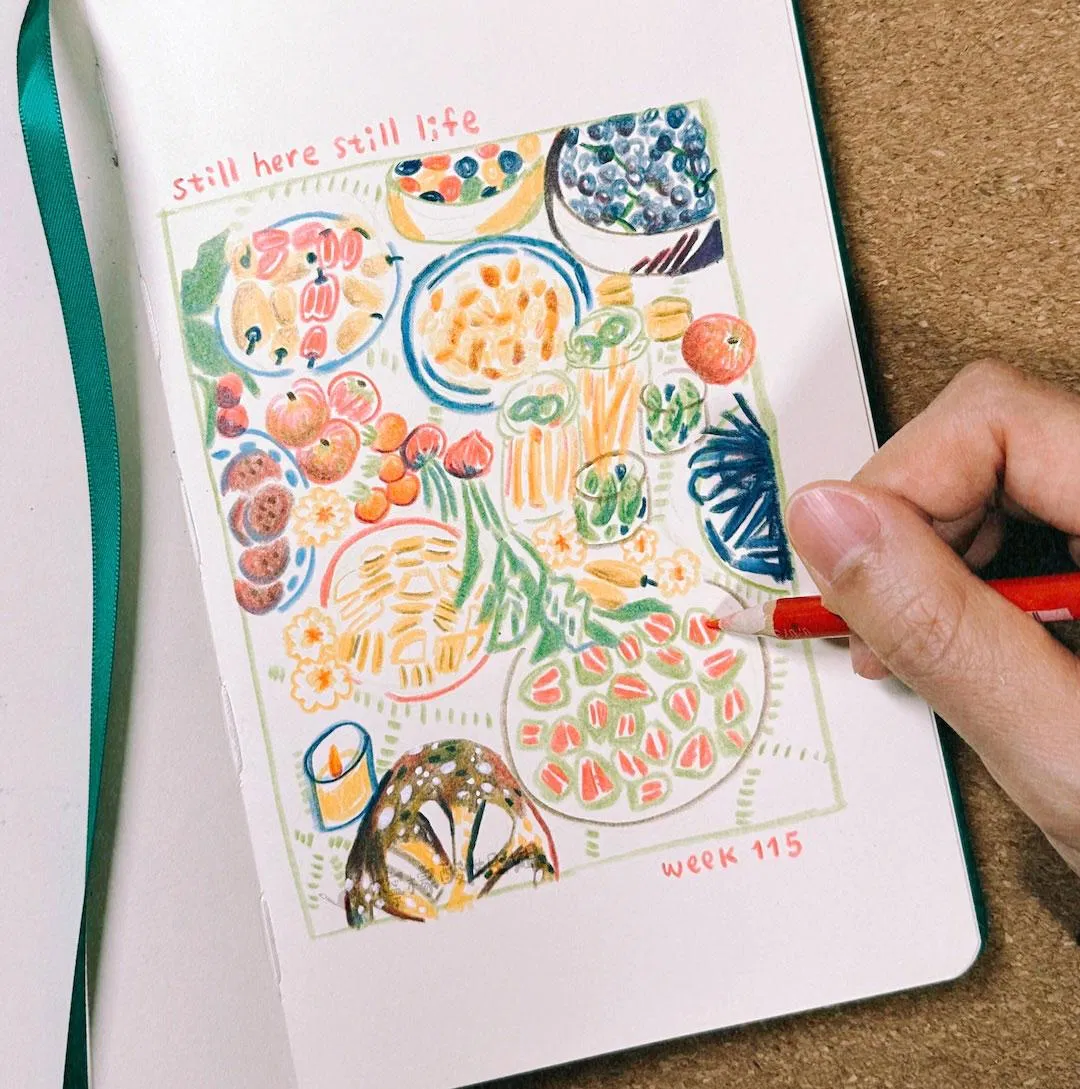 still here still life
week 115